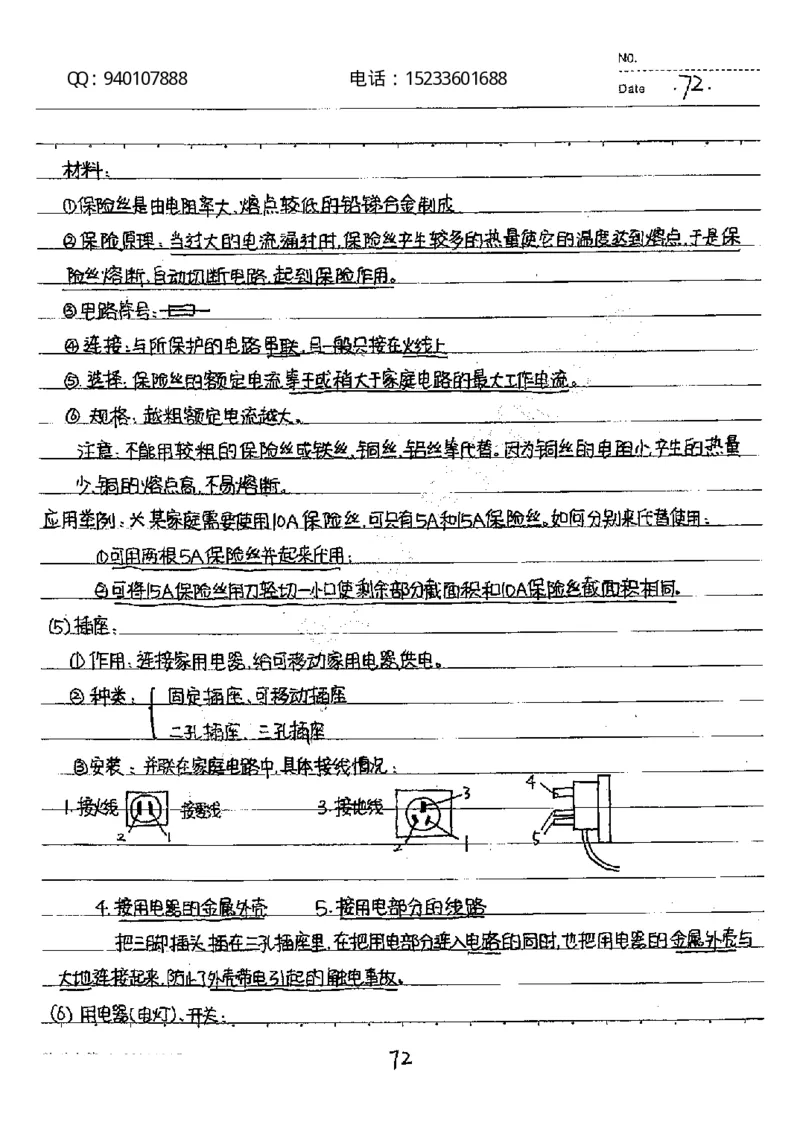 QQ：940107888 电话：15233601688 NO.
Date .72.
材料：
①保险丝是由电阻率大、熔点较低的铅锑合金制成
②保险原理：当过大的电流通过时,保险丝产生较多的热量使它的温度达到熔点,于是保
险丝熔断,自动切断电路,起到保险作用。
③电路符号：
④连接：与所保护的电路串联,且一般只接在火线上
⑤选择：保险丝的额定电流等于或稍大于家庭电路的最大工作电流。
⑥规格：越粗额定电流越大。
注意：不能用较粗的保险丝或铁丝、铜丝、铝丝等代替。因为铜丝的电阻小,产生的热量
少,铜的熔点高,不易熔断。
应用举例：☆某家庭需要使用10A保险丝,可只有5A和15A保险丝。如何分别来代替使用：
①可用两根5A保险丝并起来代用；
②可将15A保险丝用刀轻切一小口使剩余部分截面积和10A保险丝截面积相同。
(5)插座：
①作用：连接家用电器,给可移动家用电器供电。
②种类： 固定插座、可移动插座
二孔插座、三孔插座
③安装：并联在家庭电路中,具体接线情况：
1.接火线 2 1 接零线 3.接地线 3 2 1 4 5
4.接用电器的金属外壳 5.接用电部分的线路
把三脚插头插在三孔插座里,在把用电部分连入电路的同时,也把用电器的金属外壳与
大地连接起来,防止了外壳带电引起的触电事故。
(6)用电器(电灯)、开关：
72